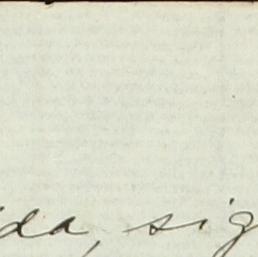 ida, sig